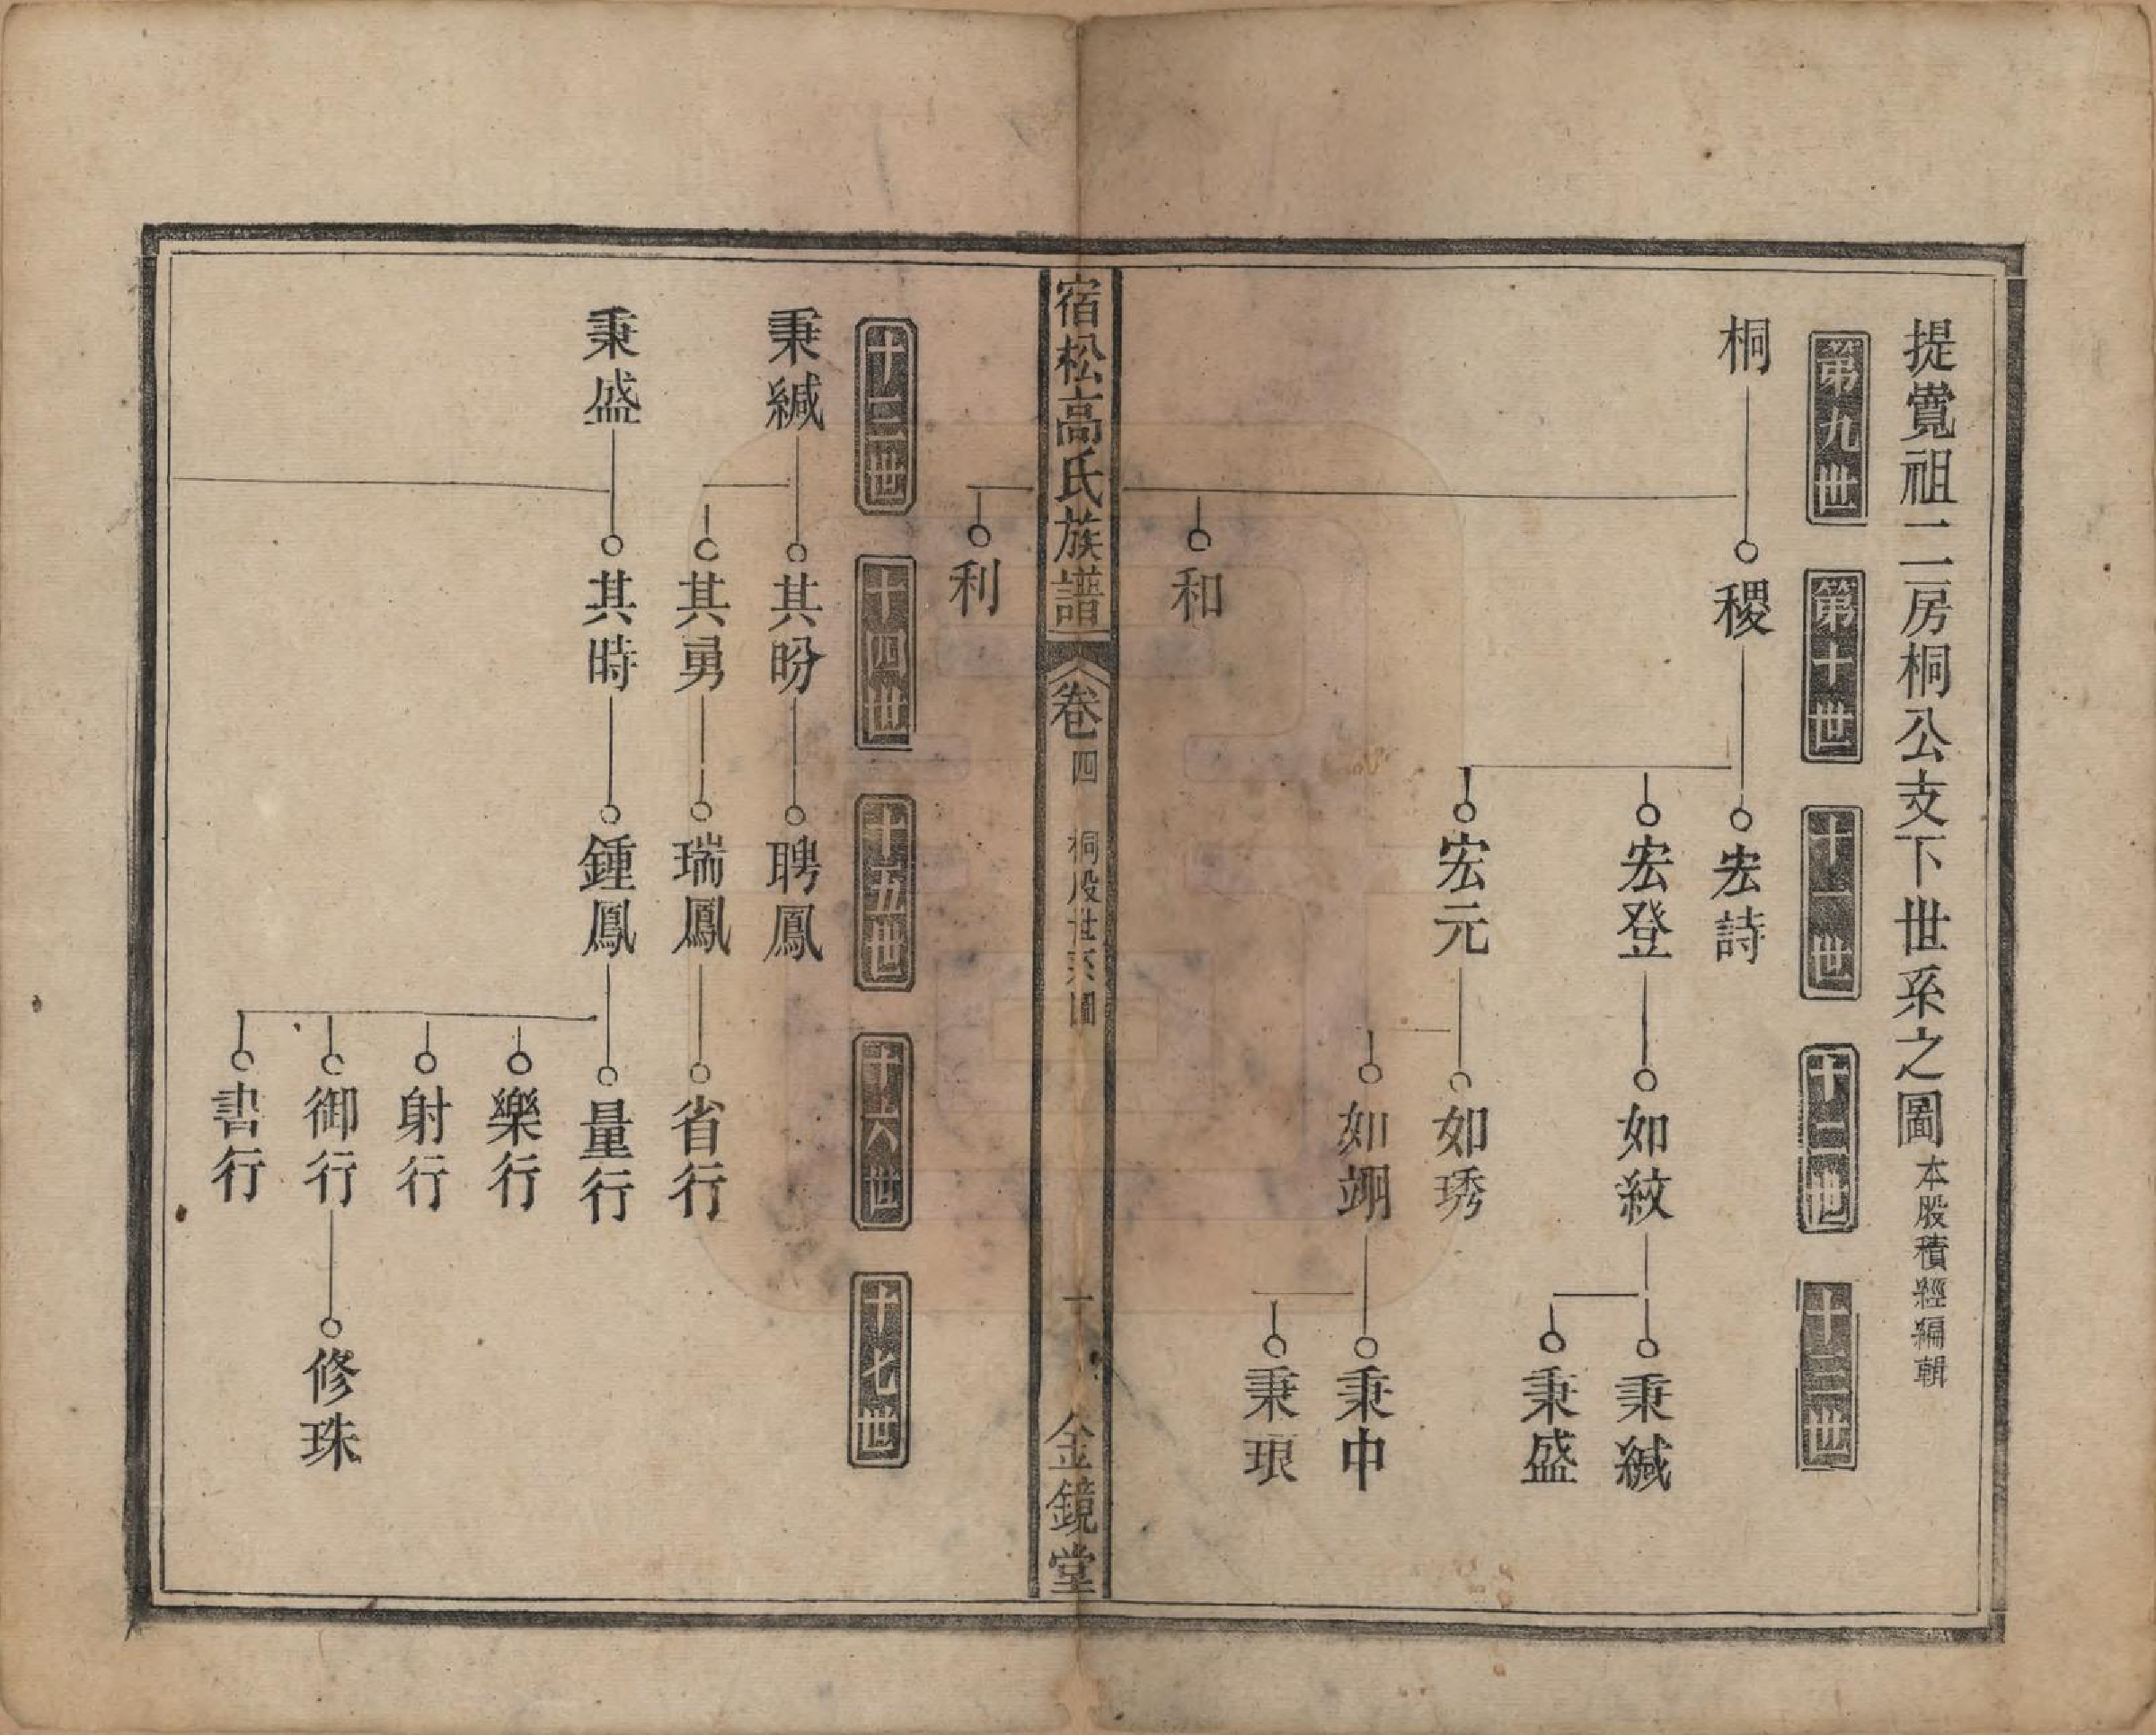 提覺祖二房桐公支下世系之圖 本股積經編輯
第九世
第十世
十一世
十二世
十三世
桐
稷
宏詩
宏登
如紋
秉緘
秉盛
宏元
如琇
如翊
秉中
秉琅
和
宿松高氏族譜 卷四 桐股世系圖 一 金鏡堂
利
十三世
十四世
十五世
十六世
十七世
秉緘
其昐
聘鳳
其勇
瑞鳳
省行
秉盛
其時
鍾鳳
量行
樂行
射行
御行
修珠
書行